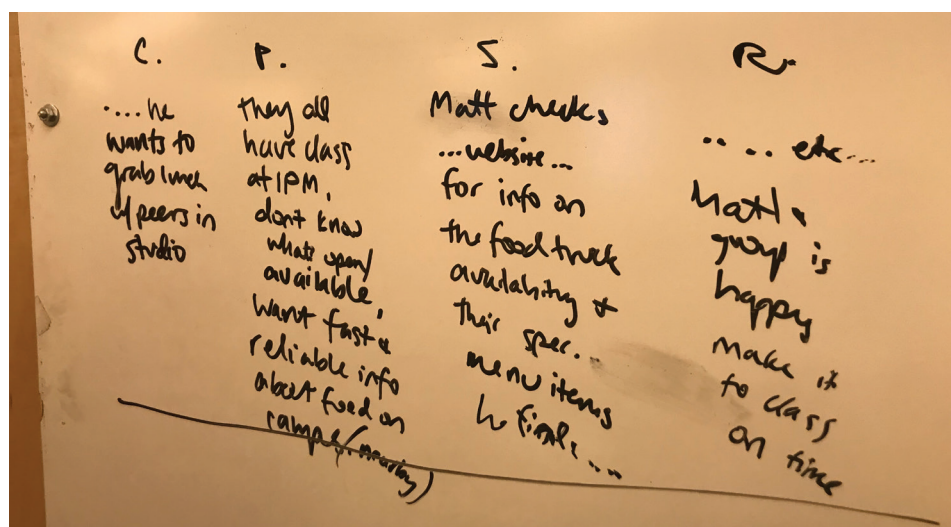 C.
....he
wants to
grab lunch
w/ peers in
studio
P.
they all
have class
at 1PM,
don't know
whats open/
available,
want fast &
reliable info
about food on
(nearby)
S.
Matt checks
...website...
for info on
the food truck
availability &
their spec...
menu items
he finds....
R.
.... etc...
Matt &
group is
happy
make it
to class
on time